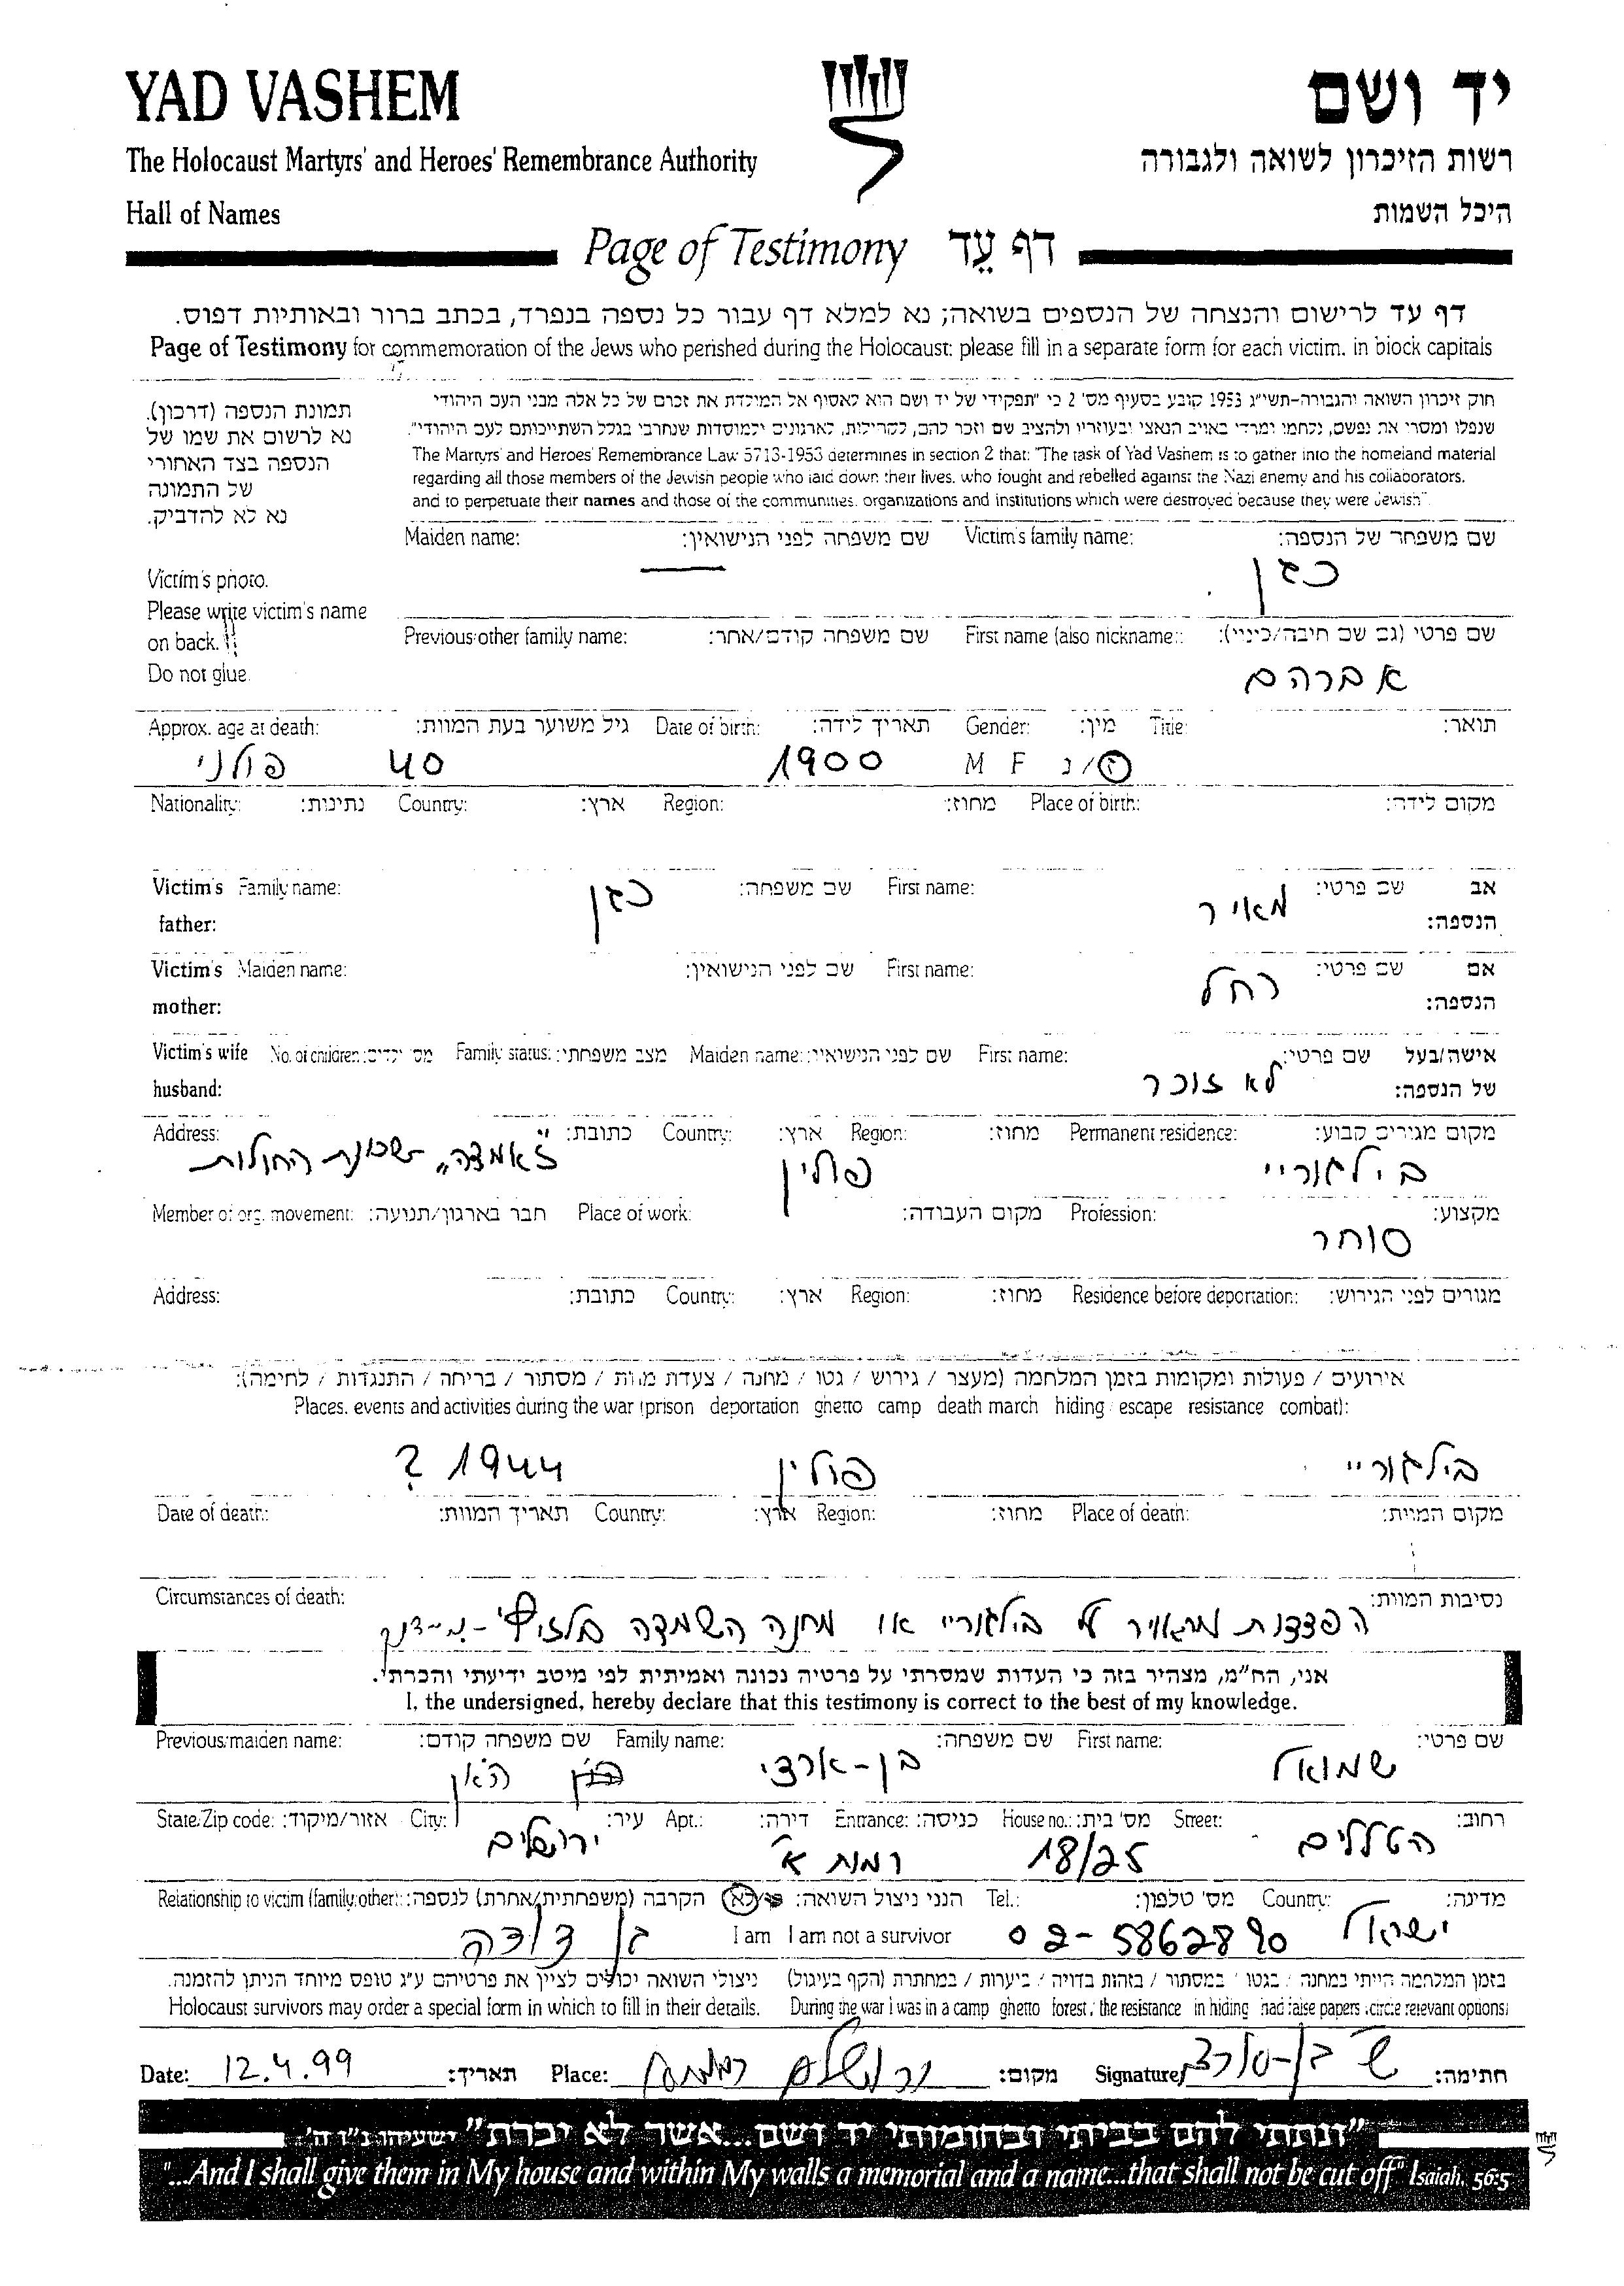 YAD VASHEM יד ושם
The Holocaust Martyrs' and Heroes' Remembrance Authority רשות הזיכרון לשואה ולגבורה
Hall of Names היכל השמות
Page of Testimony דף עֵד
דף עד לרישום והנצחה של הנספים בשואה; נא למלא דף עבור כל נספה בנפרד, בכתב ברור ובאותיות דפוס.
Page of Testimony for commemoration of the Jews who perished during the Holocaust: please fill in a separate form for each victim. in block capitals
תמונת הנספה (דרכון).
נא לרשום את שמו של
הנספה בצד האחורי
של התמונה
נא לא להדביק.
Victim's photo.
Please write victim's name
on back.
Do not glue.
חוק זיכרון השואה והגבורה-תשי"ג 1953 קובע בסעיף מס' 2 כי "תפקידי של יד ושם הוא לאסוף אל המולדת את זכרם של כל אלה מבני העם היהודי
שנפלו ומסרו את נפשם, נלחמו ומרדו באויב הנאצי ובעוזריו ולהציב שם וזכר להם, לקהילות, לארגונים ולמוסדות שנחרבו בגלל השתייכותם לעם היהודי".
The Martyrs' and Heroes' Remembrance Law 5713-1953 determines in section 2 that: "The task of Yad Vashem is to gather into the homeland material
regarding all those members of the Jewish people who laid down their lives. who fought and rebelled against the Nazi enemy and his collaborators.
and to perpetuate their names and those of the communities. organizations and institutions which were destroyed because they were Jewish".
Maiden name: שם משפחה לפני הנישואין: Victim's family name: שם משפחה של הנספה:
כגן
Previous/other family name: שם משפחה קודם/אחר: First name (also nickname): שם פרטי (גם שם חיבה/כינוי):
אברהם
Approx. age at death: גיל משוער בעת המוות: Date of birth: תאריך לידה: Gender: מין: Title: תואר:
פולני 40 1900 M F ז/נ
Nationality: נתינות: Country: ארץ: Region: מחוז: Place of birth: מקום לידה:
Victim's father: Family name: שם משפחה: First name: שם פרטי: אב הנספה:
כגן מאיר
Victim's mother: Maiden name: שם לפני הנישואין: First name: שם פרטי: אם הנספה:
רחל
Victim's wife husband: No. of children: מס' ילדים: Family status: מצב משפחתי: Maiden name: שם לפני הנישואין: First name: שם פרטי: אישה/בעל של הנספה:
לא זוכר
Address: כתובת: Country: ארץ: Region: מחוז: Permanent residence: מקום מגורים קבוע:
שכונת החולות פולין בילגוריי
Member of org. movement: חבר בארגון/תנועה: Place of work: מקום העבודה: Profession: מקצוע:
סוחר
Address: כתובת: Country: ארץ: Region: מחוז: Residence before deportation: מגורים לפני הגירוש:
אירועים / פעולות ומקומות בזמן המלחמה (מעצר / גירוש / גטו / מחנה / צעדת מוות / מסתור / בריחה / התנגדות / לחימה):
Places. events and activities during the war (prison deportation ghetto camp death march hiding escape resistance combat):
? 1944 פולין בילגוריי
Date of death: תאריך המוות: Country: ארץ: Region: מחוז: Place of death: מקום המוות:
Circumstances of death: נסיבות המוות:
הפצצות מהאויר על בילגוריי או מחנה השמדה
אני, הח"מ, מצהיר בזה כי העדות שמסרתי על פרטיה נכונה ואמיתית לפי מיטב ידיעתי והכרתי.
I, the undersigned, hereby declare that this testimony is correct to the best of my knowledge.
Previous/maiden name: שם משפחה קודם: Family name: שם משפחה: First name: שם פרטי:
האן בן-ארצי שמואל
State/Zip code: אזור/מיקוד: City: עיר: Apt.: דירה: Entrance: כניסה: House no.: מס' בית: Street: רחוב:
ירושלים רמות א' 18/25 הטללים
Relationship to victim (family/other): הקרבה (משפחתית/אחרת) לנספה: הנני ניצול השואה: כן/לא Tel.: מס' טלפון: Country: מדינה:
בן דודה I am I am not a survivor 02-5862890 ישראל
ניצולי השואה יכולים לציין את פרטיהם ע"ג טופס מיוחד הניתן להזמנה. בזמן המלחמה הייתי במחנה / בגטו / במסתור / בזהות בדויה / ביערות / במחתרת (הקף בעיגול)
Holocaust survivors may order a special form in which to fill in their details. During the war I was in a camp ghetto forest / the resistance in hiding had false papers (circle relevant options)
Date: 12.4.99 תאריך: Place: ירושלים רמות מקום: Signature ש בן-ארצי חתימה:
"ונתתי להם בביתי ובחומותי יד ושם...אשר לא יכרת" ישעיהו נ"ו ה'
"...And I shall give them in My house and within My walls a memorial and a name...that shall not be cut off" Isaiah, 56:5